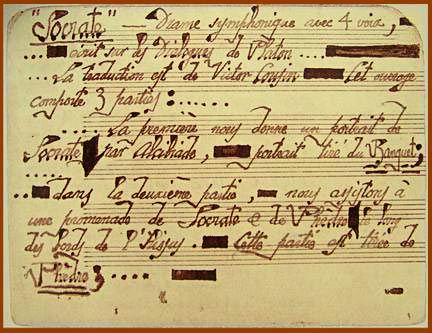 "Socrate" — Drame symphonique avec 4 voix,
.... écrit sur des Dialogues de Platon ....
... La traduction est de Victor Cousin Cet ouvrage
comporte 3 parties : .....
.... La première nous donne un portrait de
Socrate par Alcibiade, portrait tiré du Banquet;
... dans la deuxième partie, nous assistons à
une promenade de Socrate & de Phèdre le long
des bords de l'Ilissus. Cette partie est tirée de
Phèdre; ....